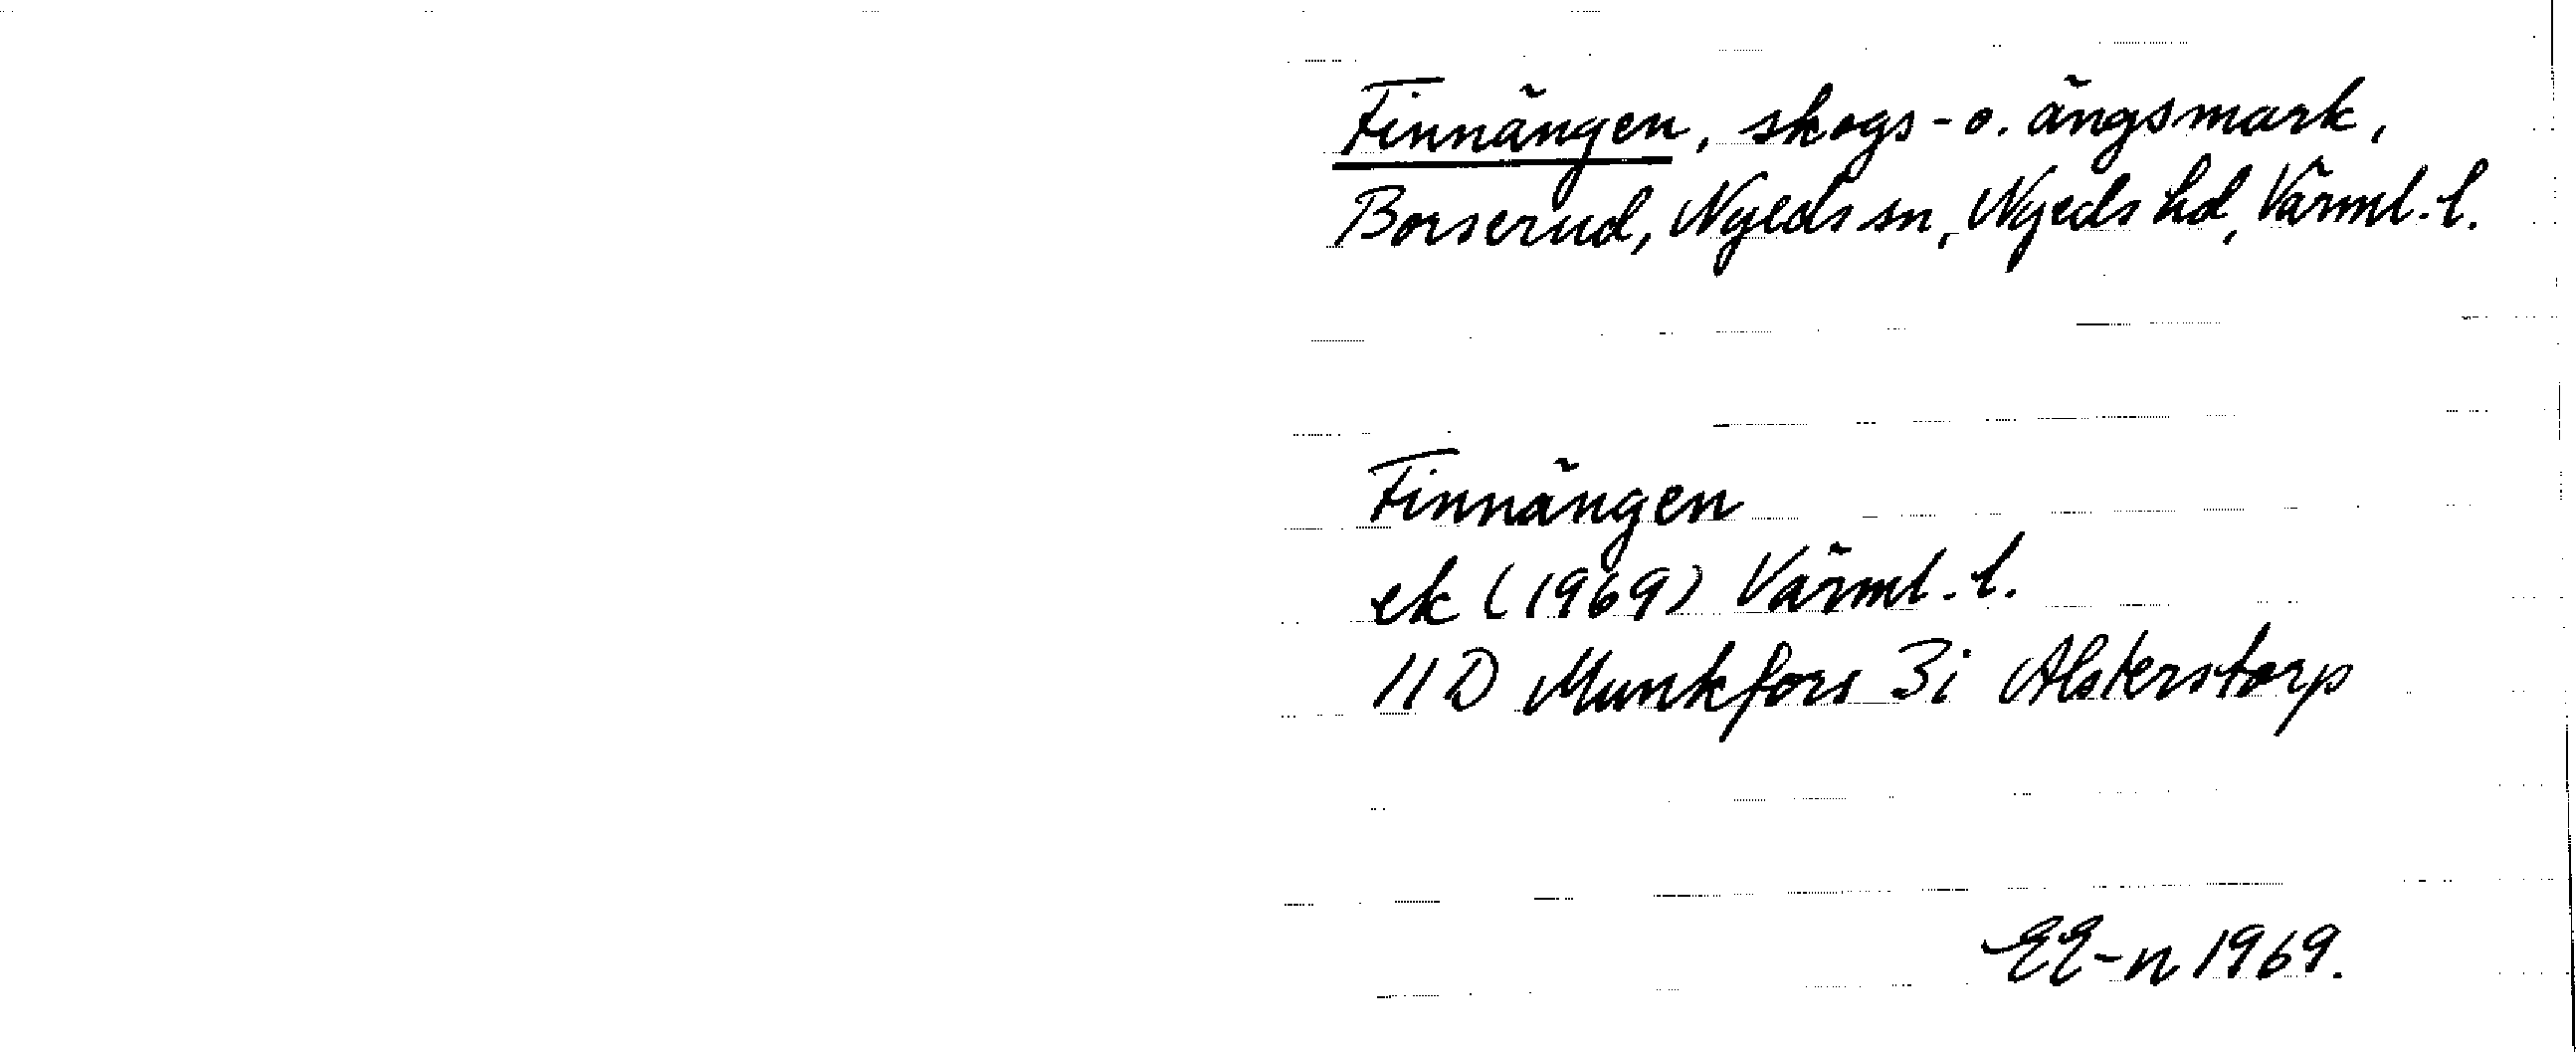 Finnängen, skogs- o. ängsmark,
Borserud, Nyeds sn, Nyeds hd, Värml. l.
Finnängen
ek (1969) Värml. l.
11D Munkfors 3i Alsterstorp
EE-n 1969.